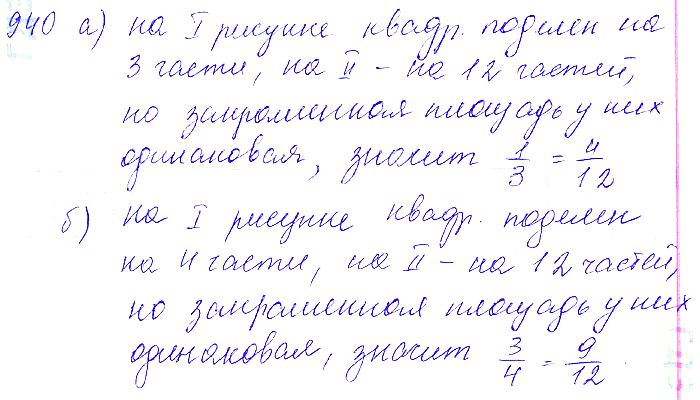 940 а) на I рисунке квадр. поделен на
3 части, на II – на 12 частей,
но закрашенная площадь у них
одинаковая, значит 1/3 = 4/12
б) на I рисунке квадр. поделен
на 4 части, на II – на 12 частей,
но закрашенная площадь у них
одинаковая, значит 3/4 = 9/12.